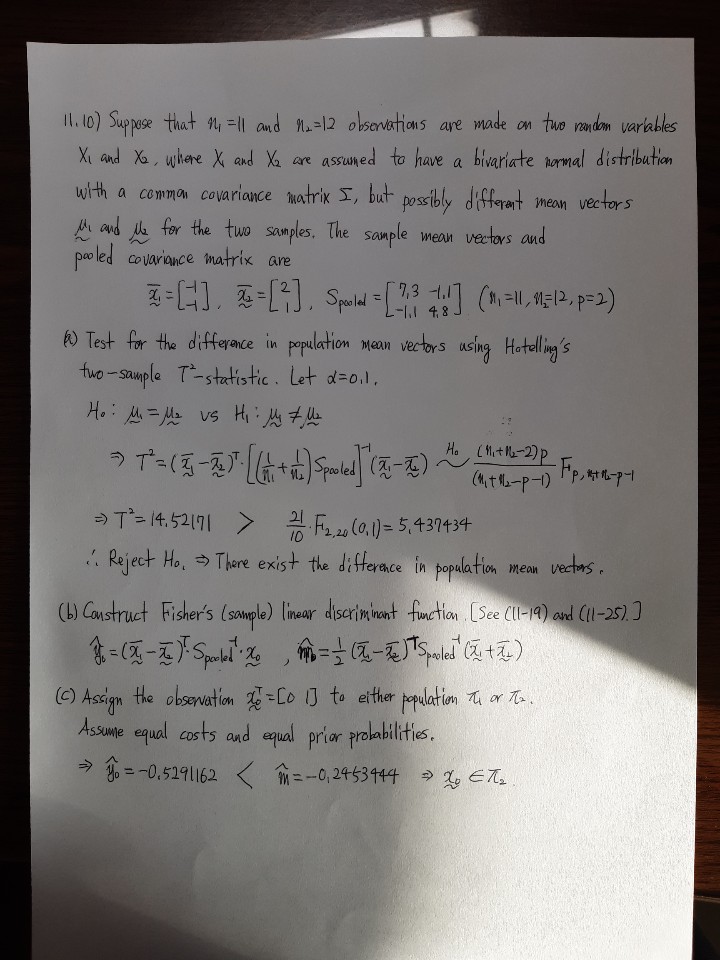 11.10) Suppose that n₁=11 and n₂=12 observations are made on two random variables
X₁ and X₂, where X₁ and X₂ are assumed to have a bivariate normal distribution
with a common covariance matrix Σ, but possibly different mean vectors
μ₁ and μ₂ for the two samples. The sample mean vectors and
pooled covariance matrix are
x̄₁=[-1 -1], x̄₂=[2 1], Spooled=[7.3 -1.1 -1.1 4.8] (n₁=11, n₂=12, p=2)
(a) Test for the difference in population mean vectors using Hotelling's
two-sample T²-statistic. Let α=0.1.
H₀: μ₁=μ₂ vs H₁: μ₁≠μ₂
⇒ T²=(x̄₁-x̄₂)ᵀ·[(1/n₁+1/n₂)Spooled]⁻¹(x̄₁-x̄₂) ~ᴴ⁰ (n₁+n₂-2)p/(n₁+n₂-p-1) F p, n₁+n₂-p-1
⇒ T²=14.52171 > 21/10·F₂,₂₀(0.1)=5.437434
∴ Reject H₀. ⇒ There exist the difference in population mean vectors.
(b) Construct Fisher's (sample) linear discriminant function. [See (11-19) and (11-25).]
ŷ₀=(x̄₁-x̄₂)ᵀ·Spooled⁻¹·x₀, m̂=1/2(x̄₁-x̄₂)ᵀSpooled⁻¹(x̄₁+x̄₂)
(c) Assign the observation x₀ᵀ=[0 1] to either population π₁ or π₂.
Assume equal costs and equal prior probabilities.
⇒ ŷ₀=-0.5291162 < m̂=-0.2453444 ⇒ x₀∈π₂.